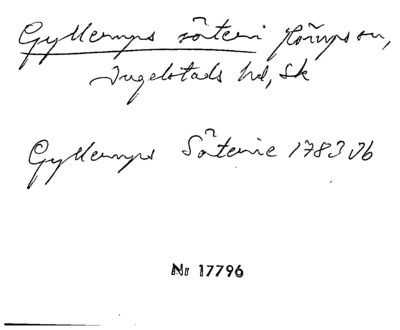 Gyllerups säteri Hörups sn,
Ingelstads hd, Sk
Gyllerups Säterie 1783 Vb
Nr 17796